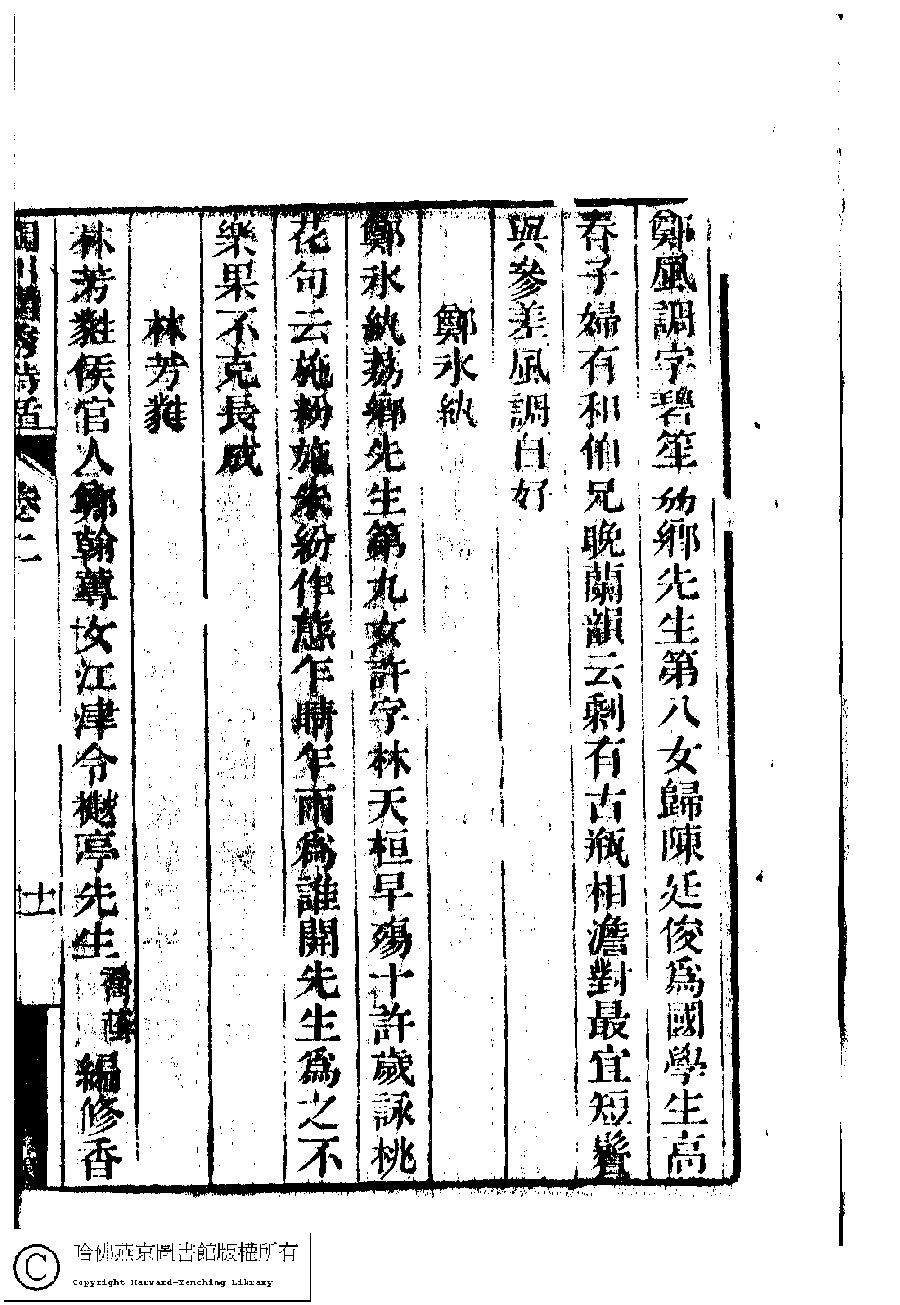 鄭風調字碧笙荔鄉先生第八女歸陳廷俊爲國學生高
春子婦有和伯兄晚蘭韻云剩有古瓶相澹對最宜短鬢
與參差風調自好
鄭冰紈
鄭冰紈荔鄉先生第九女許字林天桓早殤十許歲詠桃
花句云施粉施朱紛作態乍晴乍雨爲誰開先生爲之不
樂果不克長成
林芳蕤
林芳蕤侯官人鄭翰蓴女江津令樾亭先生喬蔭編修香
閨秀詩話
卷二
十一
哈佛燕京圖書館版權所有
Copyright Harvard-Yenching Library